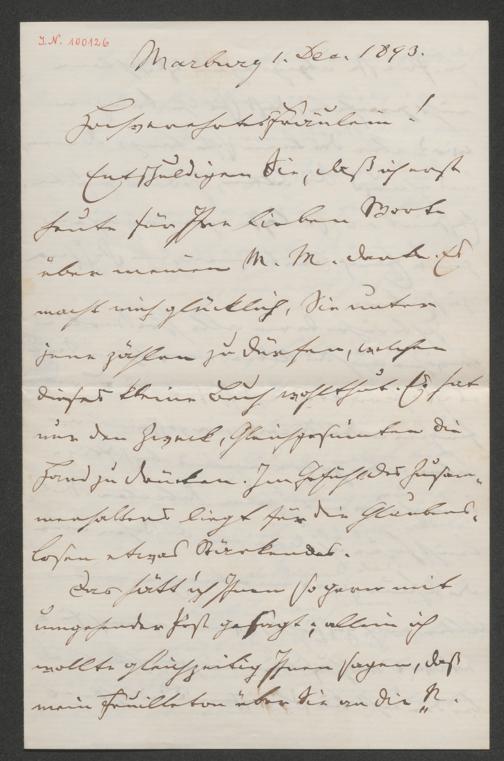 J.N. 100126
Marburg 1. Dec. 1893.
Hochverehrtes Fräulein!
Entschuldigen Sie, daß ich erst
heute für Ihre lieben Worte
über meinen M. M. danke. Es
macht mich glücklich, Sie unter
jene zählen zu dürfen, welchen
dieses kleine Buch wohlthut. Es hat
nur den Zweck, Gleichgesinnten die
Hand zu drücken. Im Gefühl des Zusam-
menhaltens liegt für die Glaubens-
losen etwas Stärkendes.
Das hätt' ich Ihnen so gern mit
umgehender Post gesagt; allein ich
wollte gleichzeitig Ihnen sagen, daß
mein Feuilleton über Sie an die „N.